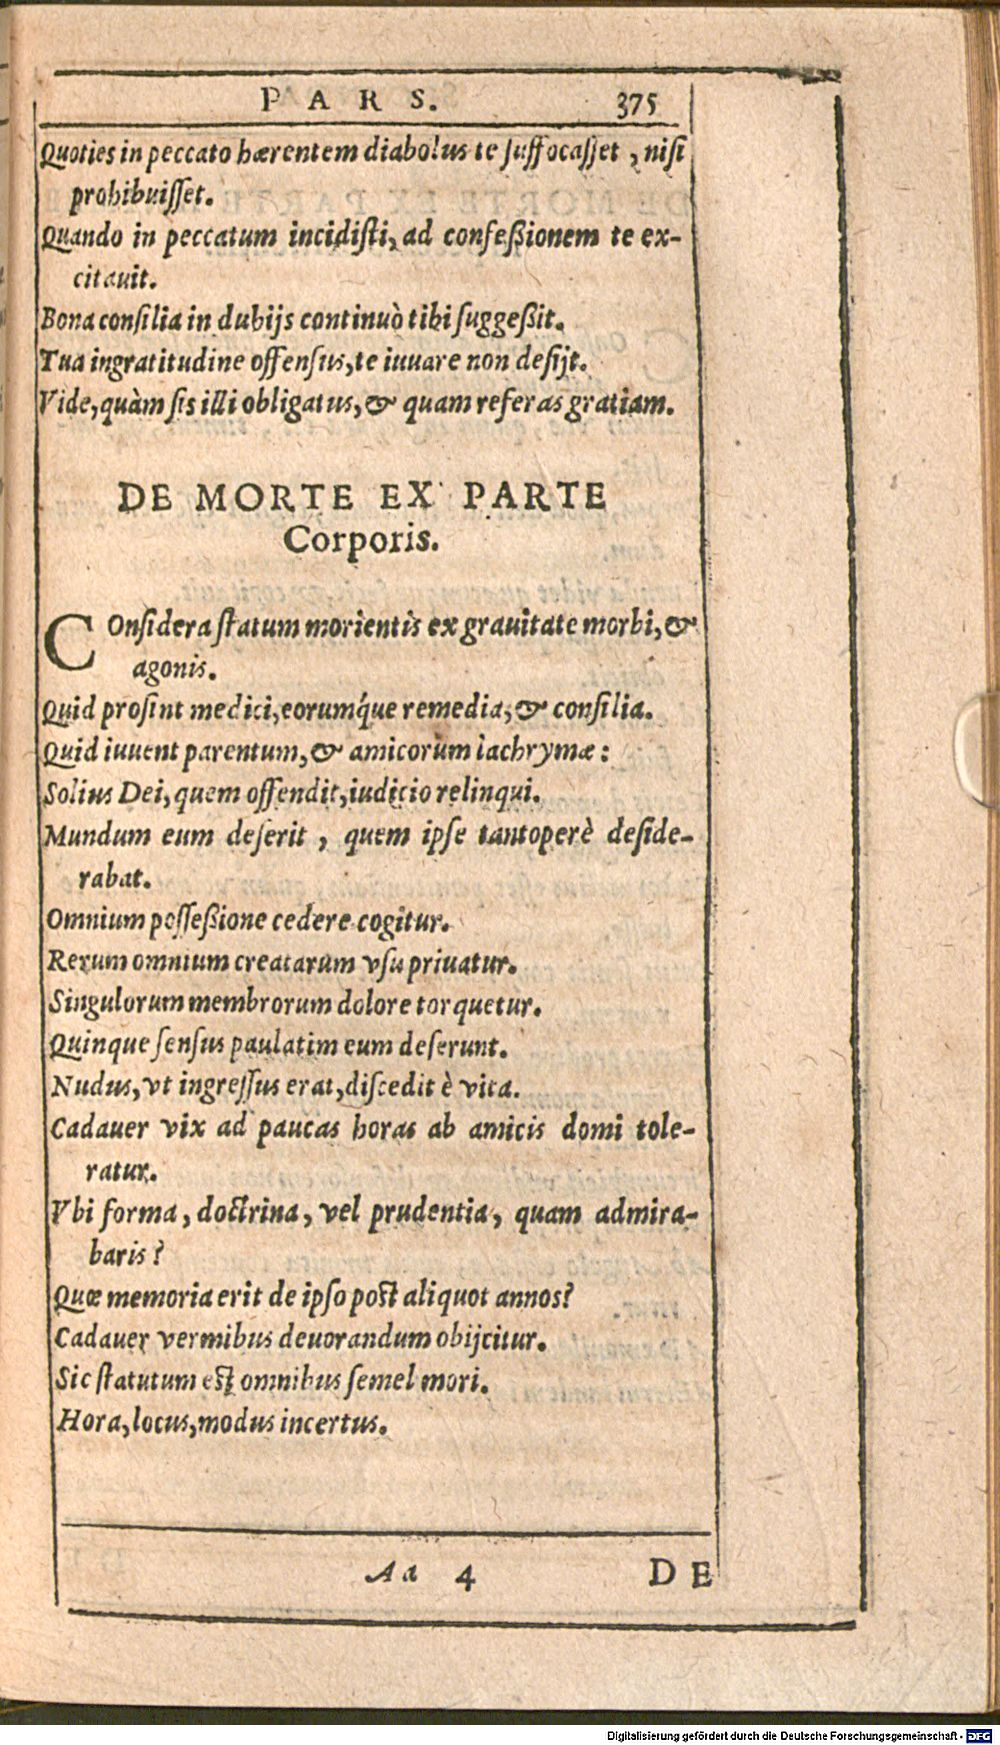 PARS. 375
Quoties in peccato hærentem diabolus te ſuffocaſſet, niſi
prohibuiſſet.
Quando in peccatum incidiſti, ad confeßionem te ex-
citauit.
Bona conſilia in dubijs continuò tibi ſuggeßit.
Tua ingratitudine offenſus, te iuuare non deſijt.
Vide, quàm ſis illi obligatus, & quam referas gratiam.
DE MORTE EX PARTE
Corporis.
COnſidera ſtatum morientis ex grauitate morbi, &
agonis.
Quid proſint medici, eorumq́ue remedia, & conſilia.
Quid iuuent parentum, & amicorum lachrymæ:
Solius Dei, quem offendit, iudicio relinqui.
Mundum eum deſerit, quem ipſe tantoperè deſide-
rabat.
Omnium poſſeßione cedere cogitur.
Rerum omnium creatarum vſu priuatur.
Singulorum membrorum dolore torquetur.
Quinque ſenſus paulatim eum deſerunt.
Nudus, vt ingreſſus erat, diſcedit è vita.
Cadauer vix ad paucas horas ab amicis domi tole-
ratur.
Vbi forma, doctrina, vel prudentia, quam admira-
baris?
Quæ memoria erit de ipſo poſt aliquot annos?
Cadauer vermibus deuorandum obijcitur.
Sic ſtatutum eſt omnibus ſemel mori.
Hora, locus, modus incertus.
Aa 4 DE
Digitalisierung gefördert durch die Deutsche Forschungsgemeinschaft - DFG